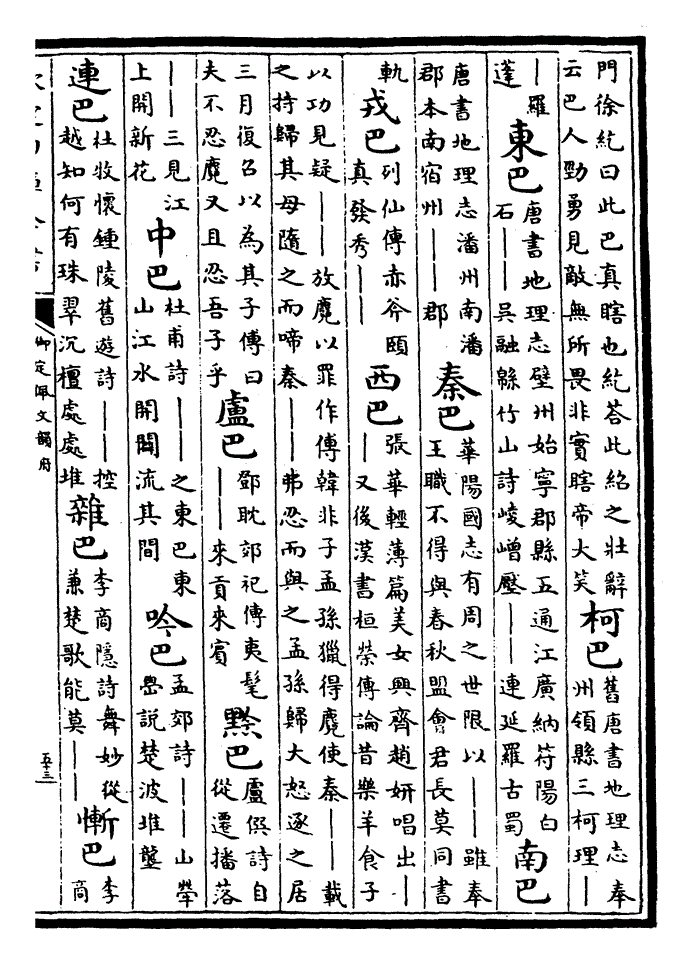 門徐紇曰此巴真瞎也紇荅此紹之壯辭
云巴人勁勇見敵無所畏非實瞎帝大笑
柯巴
舊唐書地理志奉
州領縣三柯理｜
｜羅
蓬
東巴
唐書地理志壁州始寧郡縣五通江廣納符陽白
石｜｜吳融緜竹山詩峻嶒壓｜｜連延羅古蜀
南巴
唐書地理志潘州南潘
郡本南宿州｜｜郡
秦巴
華陽國志有周之世限以｜｜雖奉
王職不得與春秋盟會君長莫同書
軌
戎巴
列仙傳赤斧頤
真發秀｜｜
西巴
張華輕薄篇美女興齊趙妍唱出｜
｜又後漢書桓榮傳論昔樂羊食子
以功見疑｜｜放麑以罪作傅韓非子孟孫獵得麑使秦｜｜載
之持歸其母隨之而啼秦｜｜弗忍而與之孟孫歸大怒逐之居
三月復召以為其子傅曰
夫不忍麑又且忍吾子乎
盧巴
鄧耽郊祀傳夷髦
｜｜來貢來賓
黔巴
盧僎詩自
從遷播落
｜｜三見江
上開新花
中巴
杜甫詩｜｜之東巴東
山江水開闢流其間
吟巴
孟郊詩｜｜山犖
嶨說楚波堆壟
連巴
杜牧懷鍾陵舊遊詩｜｜控
越知何有珠翠沉檀處處堆
雜巴
李商隱詩舞妙從
兼楚歌能莫｜｜
慚巴
李
商
御定佩文韻府
五十三